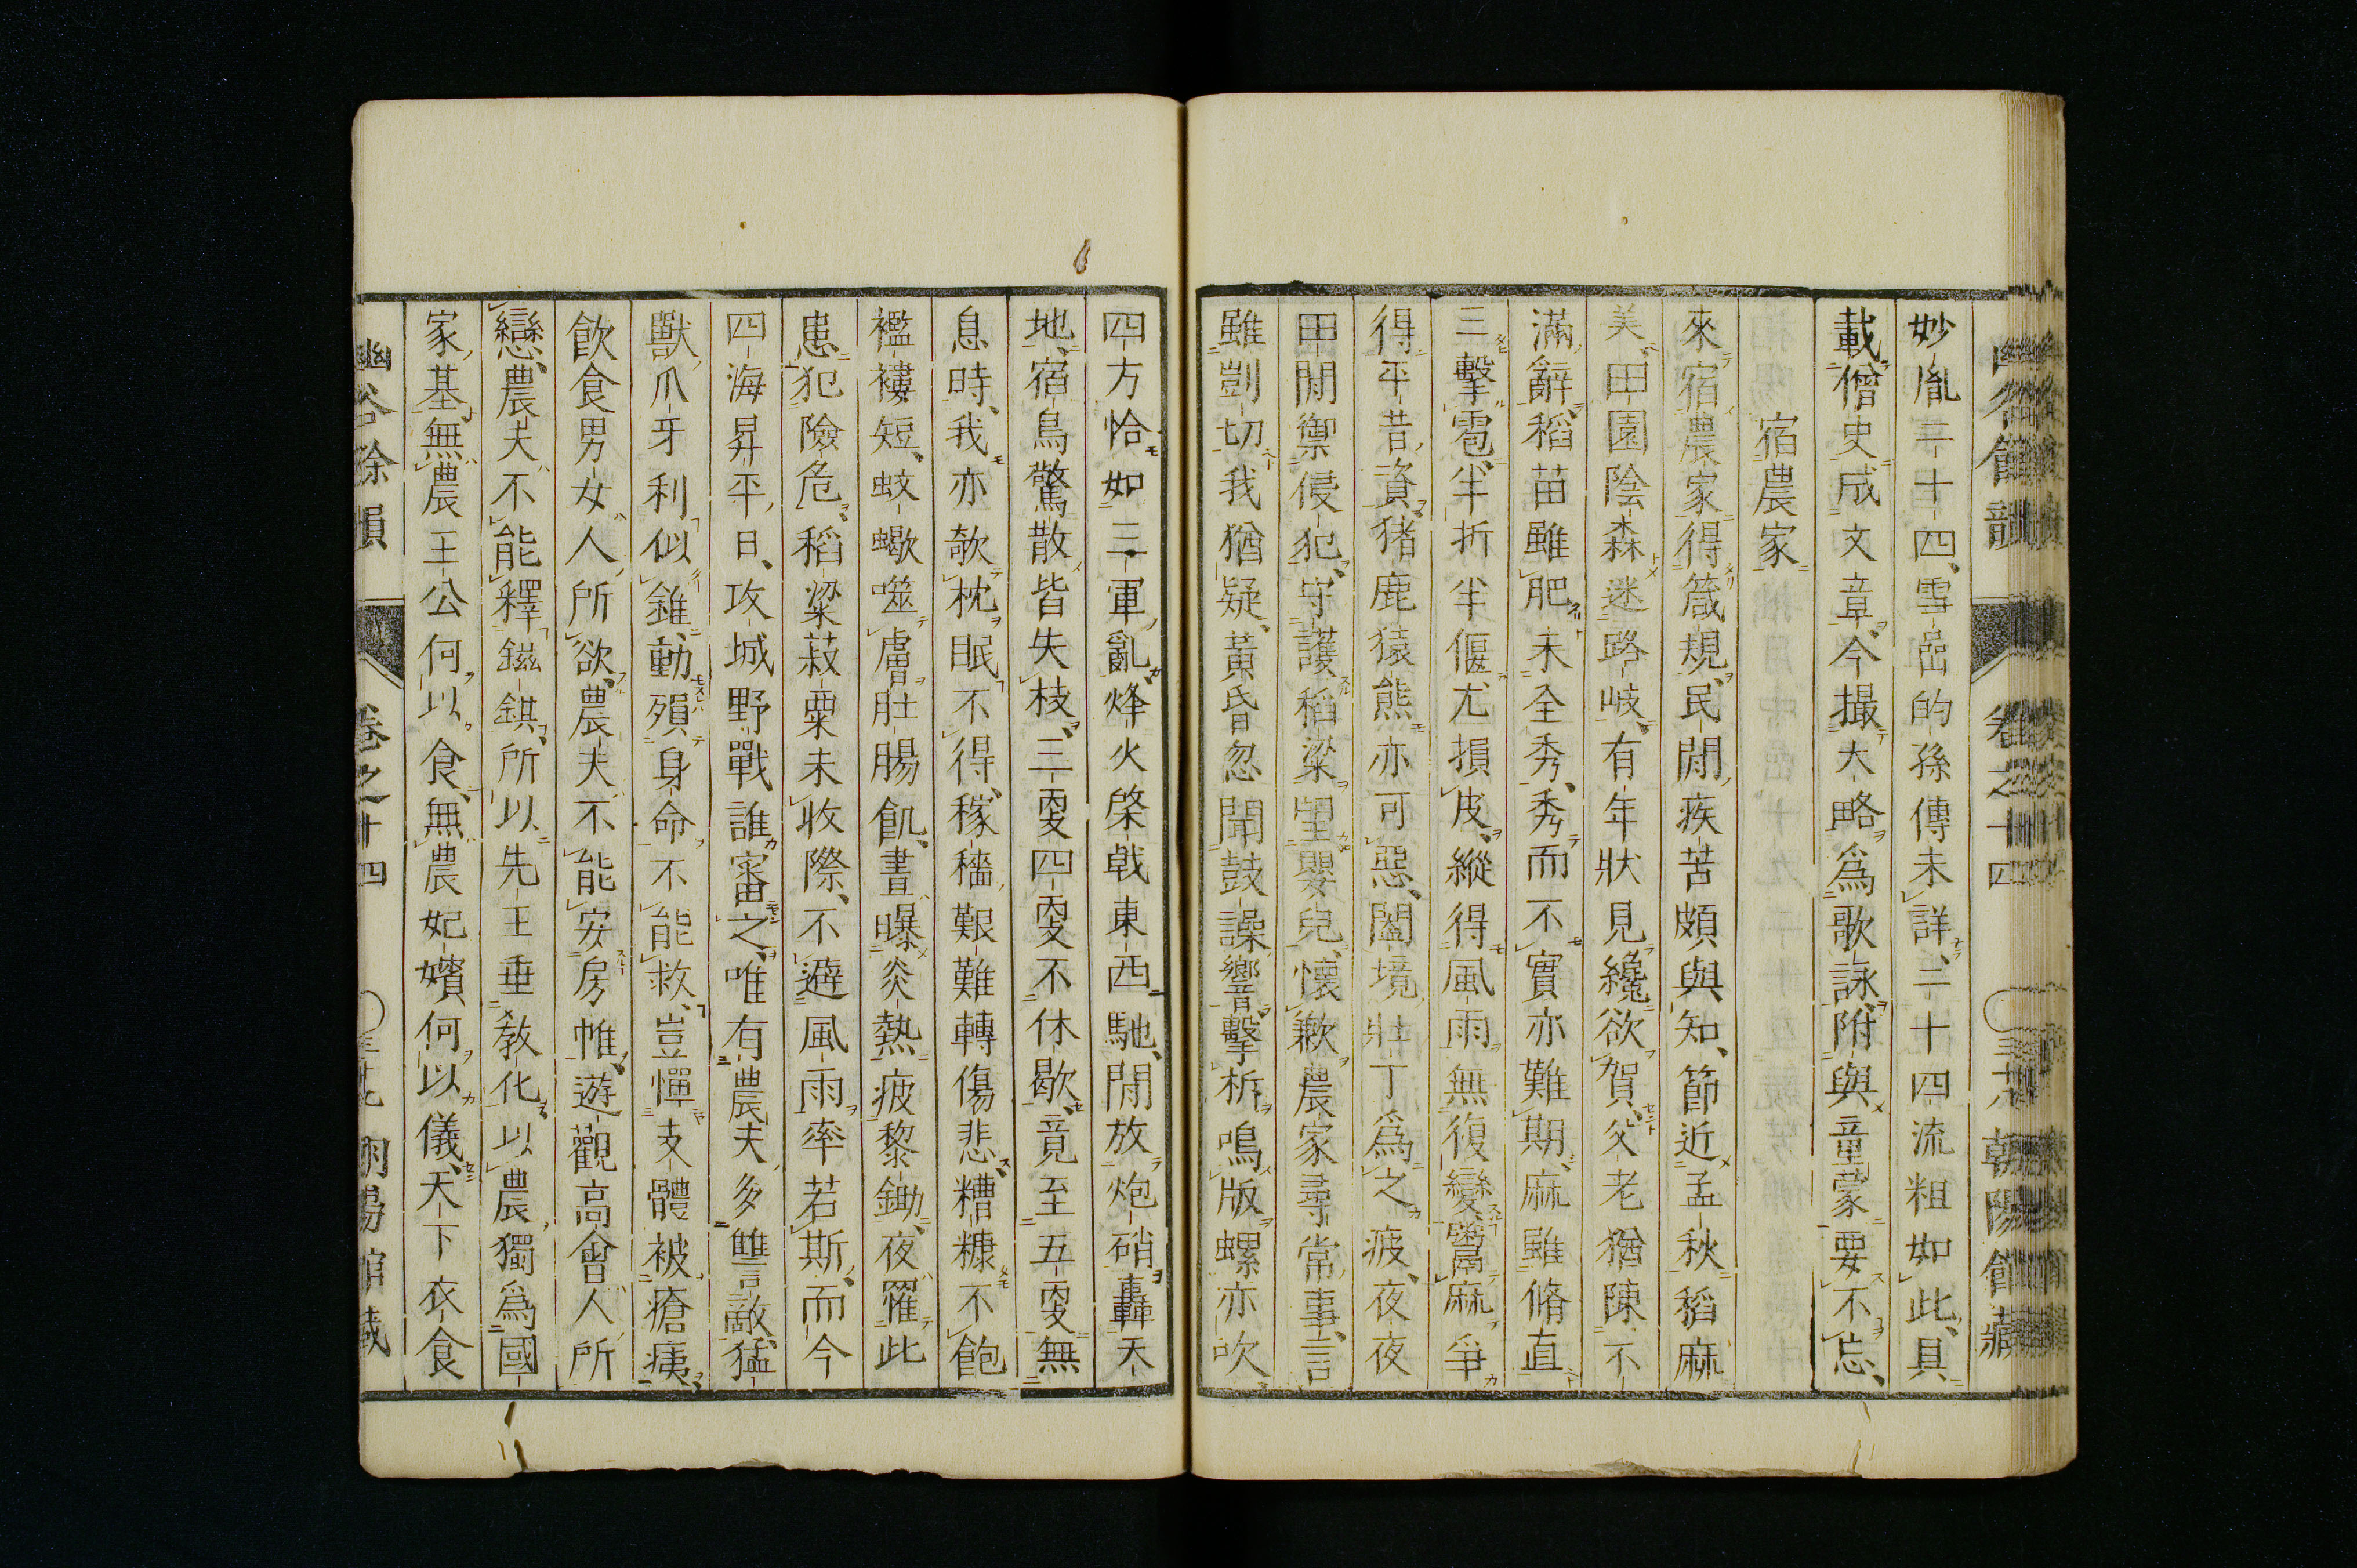 妙胤二十四、雪嵒的孫傳未詳、二十四流粗如此、具
載僧史成文章、今撮大略爲歌詠、附與童蒙要不忘、
宿農家
來宿農家得箴規、民閒疾苦頗與知、節近孟秋稻麻
美、田園陰森迷路岐、有年狀見纔欲賀、父老猶陳不
滿辭、稻苗雖肥未全秀、秀而不實亦難期、麻雖脩直
三擊雹、半折半偃尤損皮、縱得風雨無復變、鬻麻爭
得平昔資、猪鹿猿熊亦可惡、闔境壯丁爲之疲、夜夜
田閒禦侵犯、守護稻粱望嬰兒、懷歉農家尋常事、言
雖剴切我猶疑、黃昏忽聞鼓譟響、擊柝鳴版螺亦吹、
四方恰如三軍亂、烽火棨戟東西馳、閒放炮硝轟天
地、宿鳥驚散皆失枝、三更四更不休歇、竟至五更無
息時、我亦欹枕眠不得、稼穡艱難轉傷悲、糟糠不飽
襤褸短、蚊蠍噬膚肚腸飢、晝曝炎熱疲黎鋤、夜罹此
患犯險危、稻粱菽粟未收際、不避風雨率若斯、而今
四海昇平日、攻城野戰誰審之、唯有農夫多讐敵、猛
獸爪牙利似錐、動殞身命不能救、豈憚支體被瘡痍、
飲食男女人所欲、農夫不能安房帷、遊觀高會人所
戀、農夫不能釋鎡錤、所以先王垂敎化、以農獨爲國
家基、無農王公何以食、無農妃嬪何以儀、天下衣食
幽谷餘韻 卷之十四